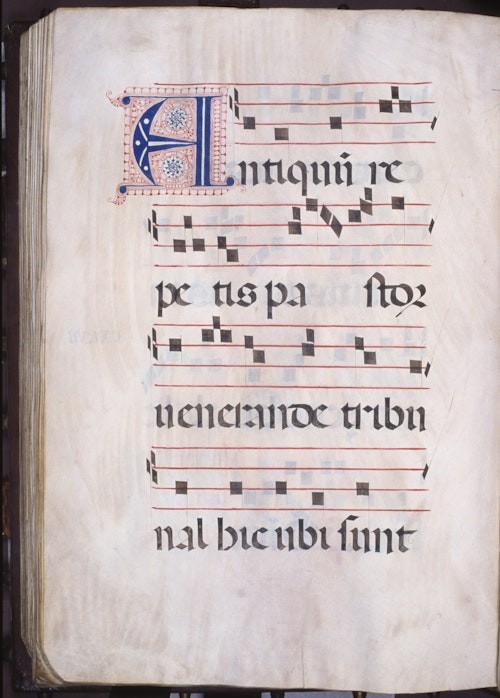 Antiquū re
pe tis pa stor
uenerande tribu
nal hic ubi sunt